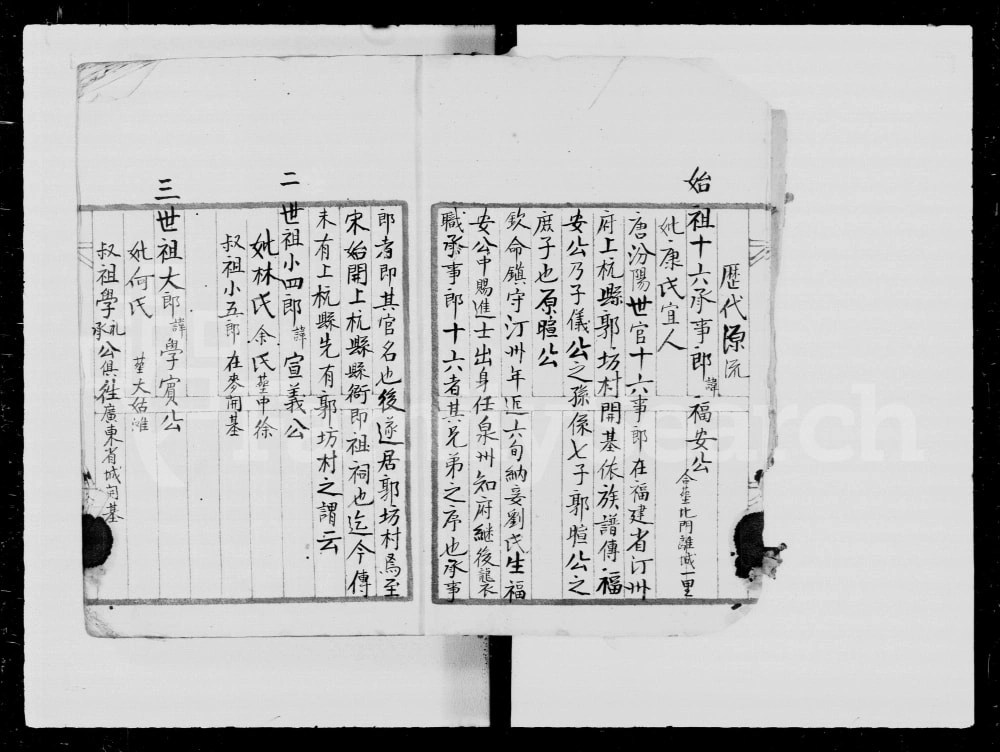 歷代源流
始祖十六承事郎諱福安公 合塟北門離城一里
妣康氏宜人
唐汾陽世官十六事郎在福建省汀州
府上杭縣郭坊村開基依族譜傳福
安公乃子儀公之孫係七子郭暄公之
庶子也原暄公
欽命鎮守汀州年近六旬納妾劉氏生福
安公中賜進士出身任泉州知府継後襲
職承事郎十六者其兄弟之序也承事
郎者即其官名也後遂居郭坊村爲至
宋始開上杭縣縣衙即祖祠也迄今傳
未有上杭縣先有郭坊村之謂云
二世祖小四郎諱宣義公
妣林氏余氏塟中徐
叔祖小五郎在麥開基
三世祖大郎諱學賓公
妣何氏 塟大姑灘
叔祖學礼承公俱往廣東省城開基